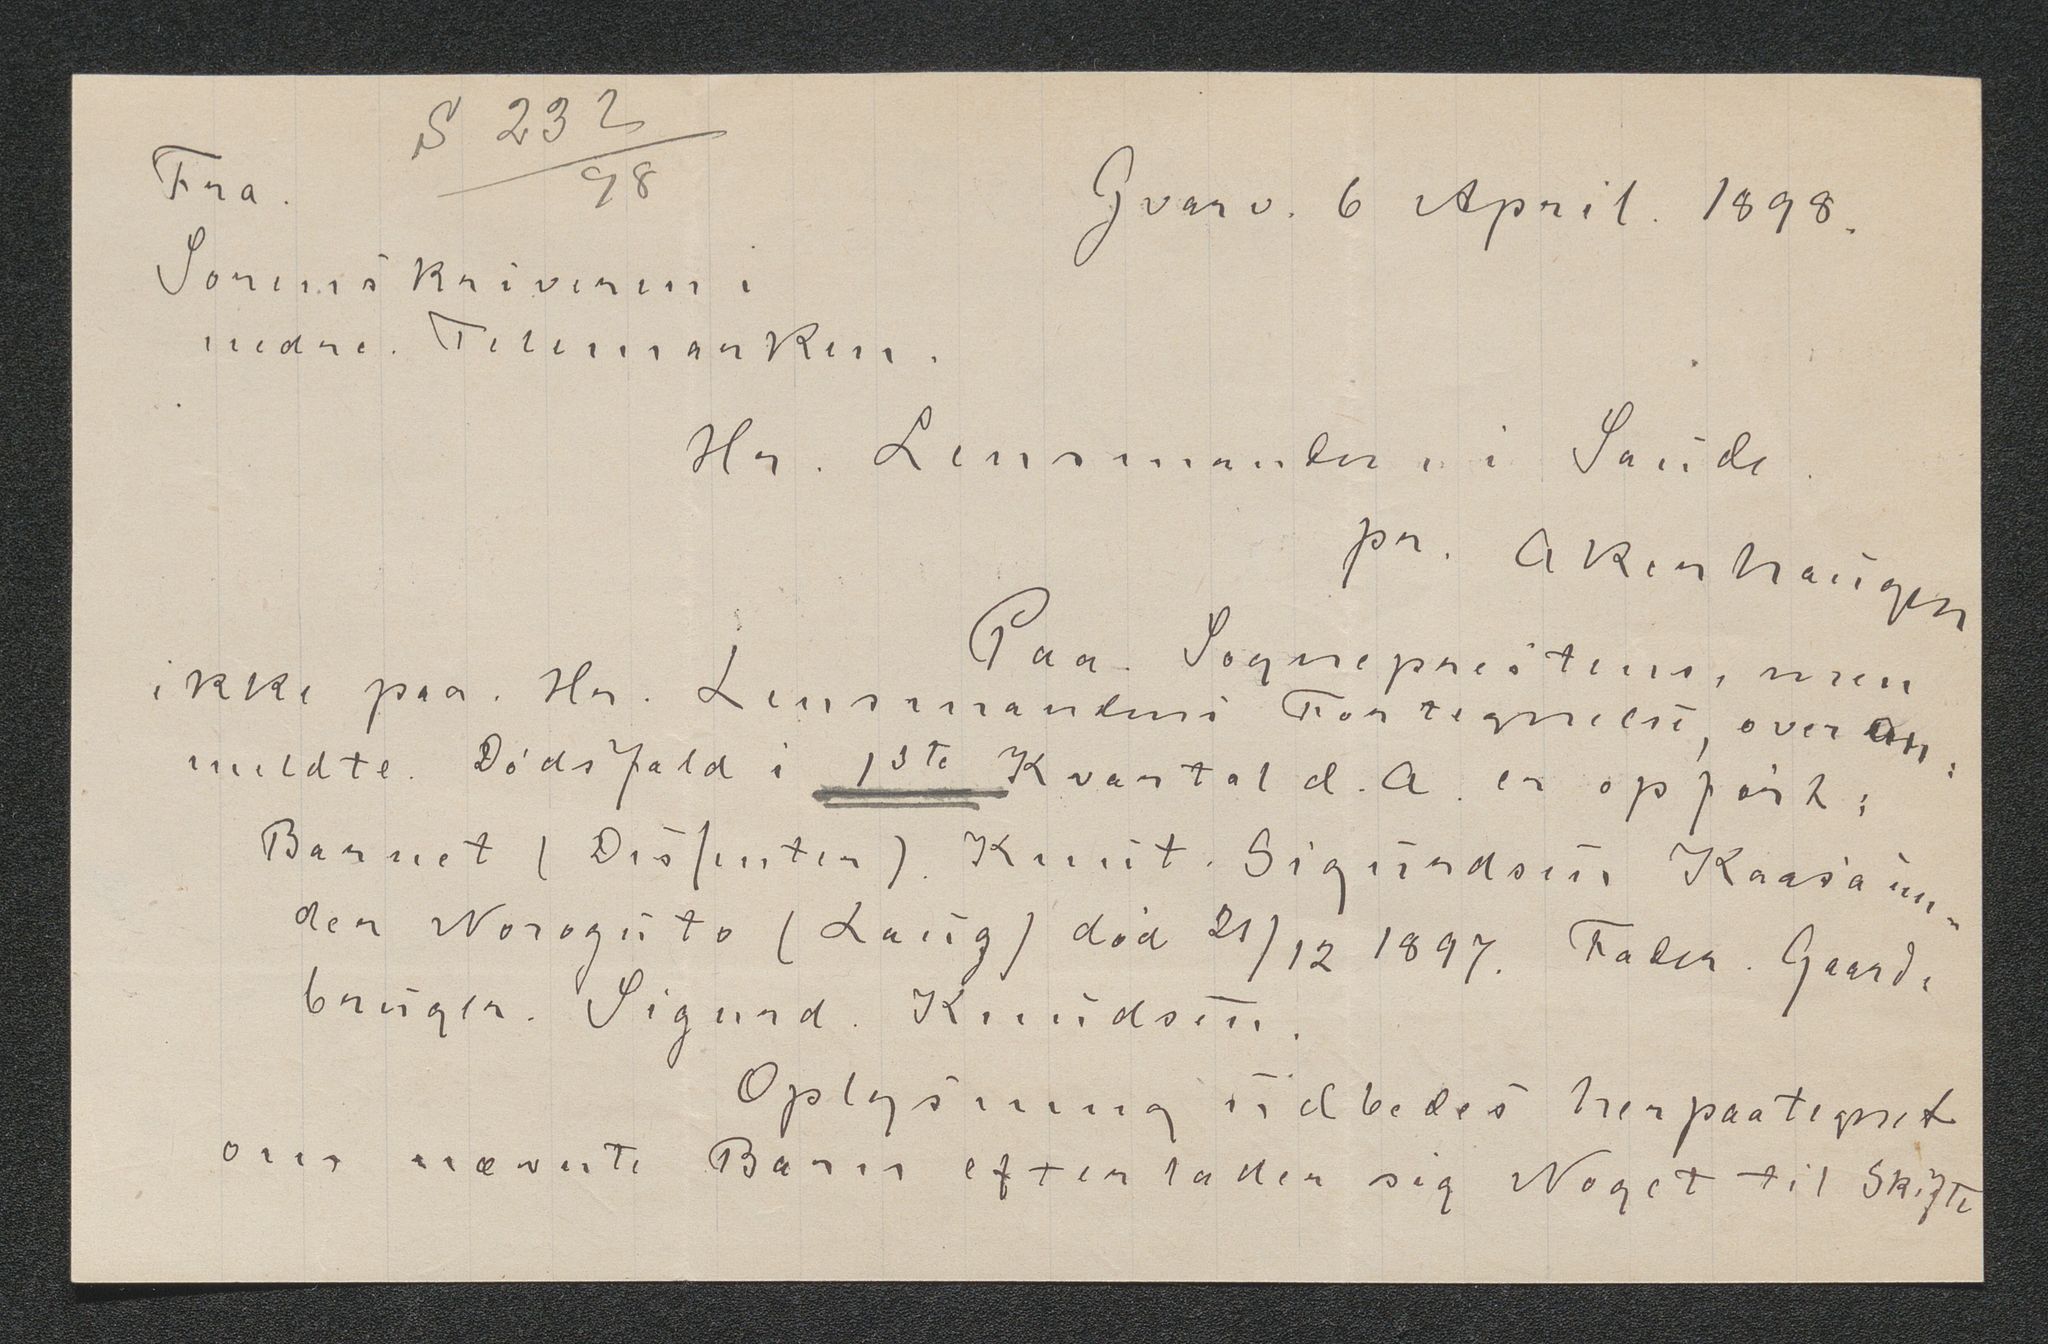 S 232
98
Fra.
Gvarv. 6 April. 1898.
Sorenskriveren i
nedre. Telemarken.
Hr. Lensmanden i Saude.
pr. Akerhaugen
Paa. Sognepræstens, men
ikke paa. Hr. Lensmandens Fortegnelse, over an-
meldte. Dødsfald i 1ste Kvartal d. A. er opført:
Barnet (Dissenter). Knut. Sigurdsen Kaasa un-
der Noroguto (Laug) død 21/12 1897. Fader. Gaard-
bruger. Sigurd. Knudsen.
Oplysning udbedes herpaategnet
om nævnte Barn efterlader sig Noget til Skifte